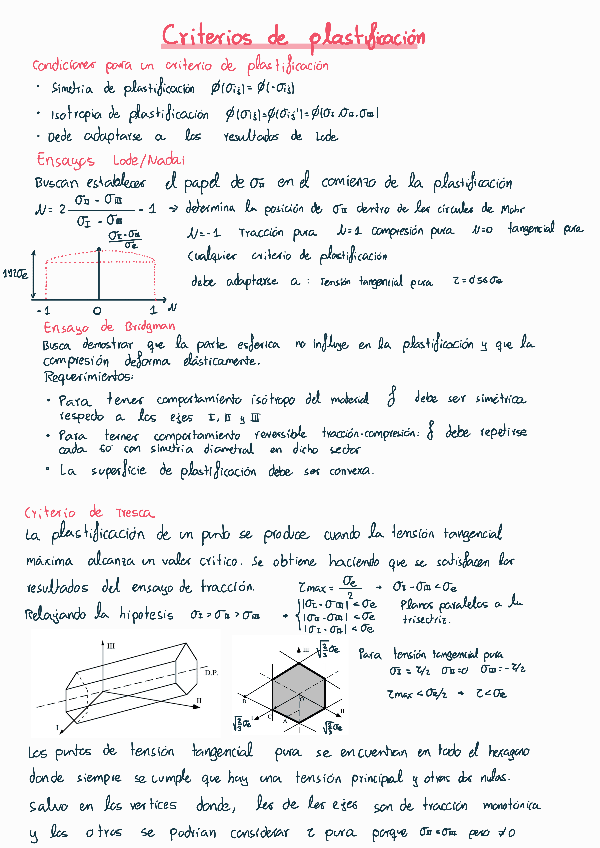 Criterios de plastificación
Condiciones para un criterio de plastificación
· Simetria de plastificación ϕ(σij) = ϕ(-σij)
· Isotropia de plastificación ϕ(σij)=ϕ(σij')=ϕ(σI,σII,σIII)
· Debe adaptarse a los resultados de Lode
Ensayos Lode/Nadai
Buscan establecer el papel de σII en el comienzo de la plastificación
N = 2 (σII - σIII)/(σI - σIII) - 1 → determina la posición de σII dentro de los círculos de Mohr
N=-1 Tracción pura N=1 compresión pura N=0 tangencial pura
(σI-σIII)/σe
Cualquier criterio de plastificación
debe adaptarse a : Tensión tangencial pura τ=0'56σe
-1 0 1 N
Ensayo de Bridgman
Busca demostrar que la parte esferica no influye en la plastificación y que la
compresión deforma elásticamente.
Requerimientos:
· Para tener comportamiento isótropo del material f debe ser simétrica
respecto a los ejes I, II y III
· Para terner comportamiento reversible tracción-compresión: f debe repetirse
cada 60 con simetria diametral en dicho sector
· La superficie de plastificación debe ser convexa.
Criterio de Tresca
La plastificación de un punto se produce cuando la tensión tangencial
máxima alcanza un valor crítico. Se obtiene haciendo que se satisfacen los
resultados del ensayo de tracción. τmax = σe/2 → σI-σIII<σe
Relajando la hipotesis σI>σII>σIII →
|σI-σIII| < σe
|σII-σIII| < σe
|σI-σII| < σe
Planos paralelos a la
trisectriz.
III
D.P.
II
I
√(2/3)σe
√(2/3)σe
√(2/3)σe
Para tensión tangencial pura
σI = τ/2 σII=0 σIII=-τ/2
τmax<σe/2 → τ<σe
Los puntos de tensión tangencial pura se encuentran en todo el hexagono
donde siempre se cumple que hay una tensión principal y otras dos nulas.
Salvo en los vertices donde, les de los ejes son de tracción monotónica
y los otros se podrian considerar τ pura porque σII=σIII pero ≠0